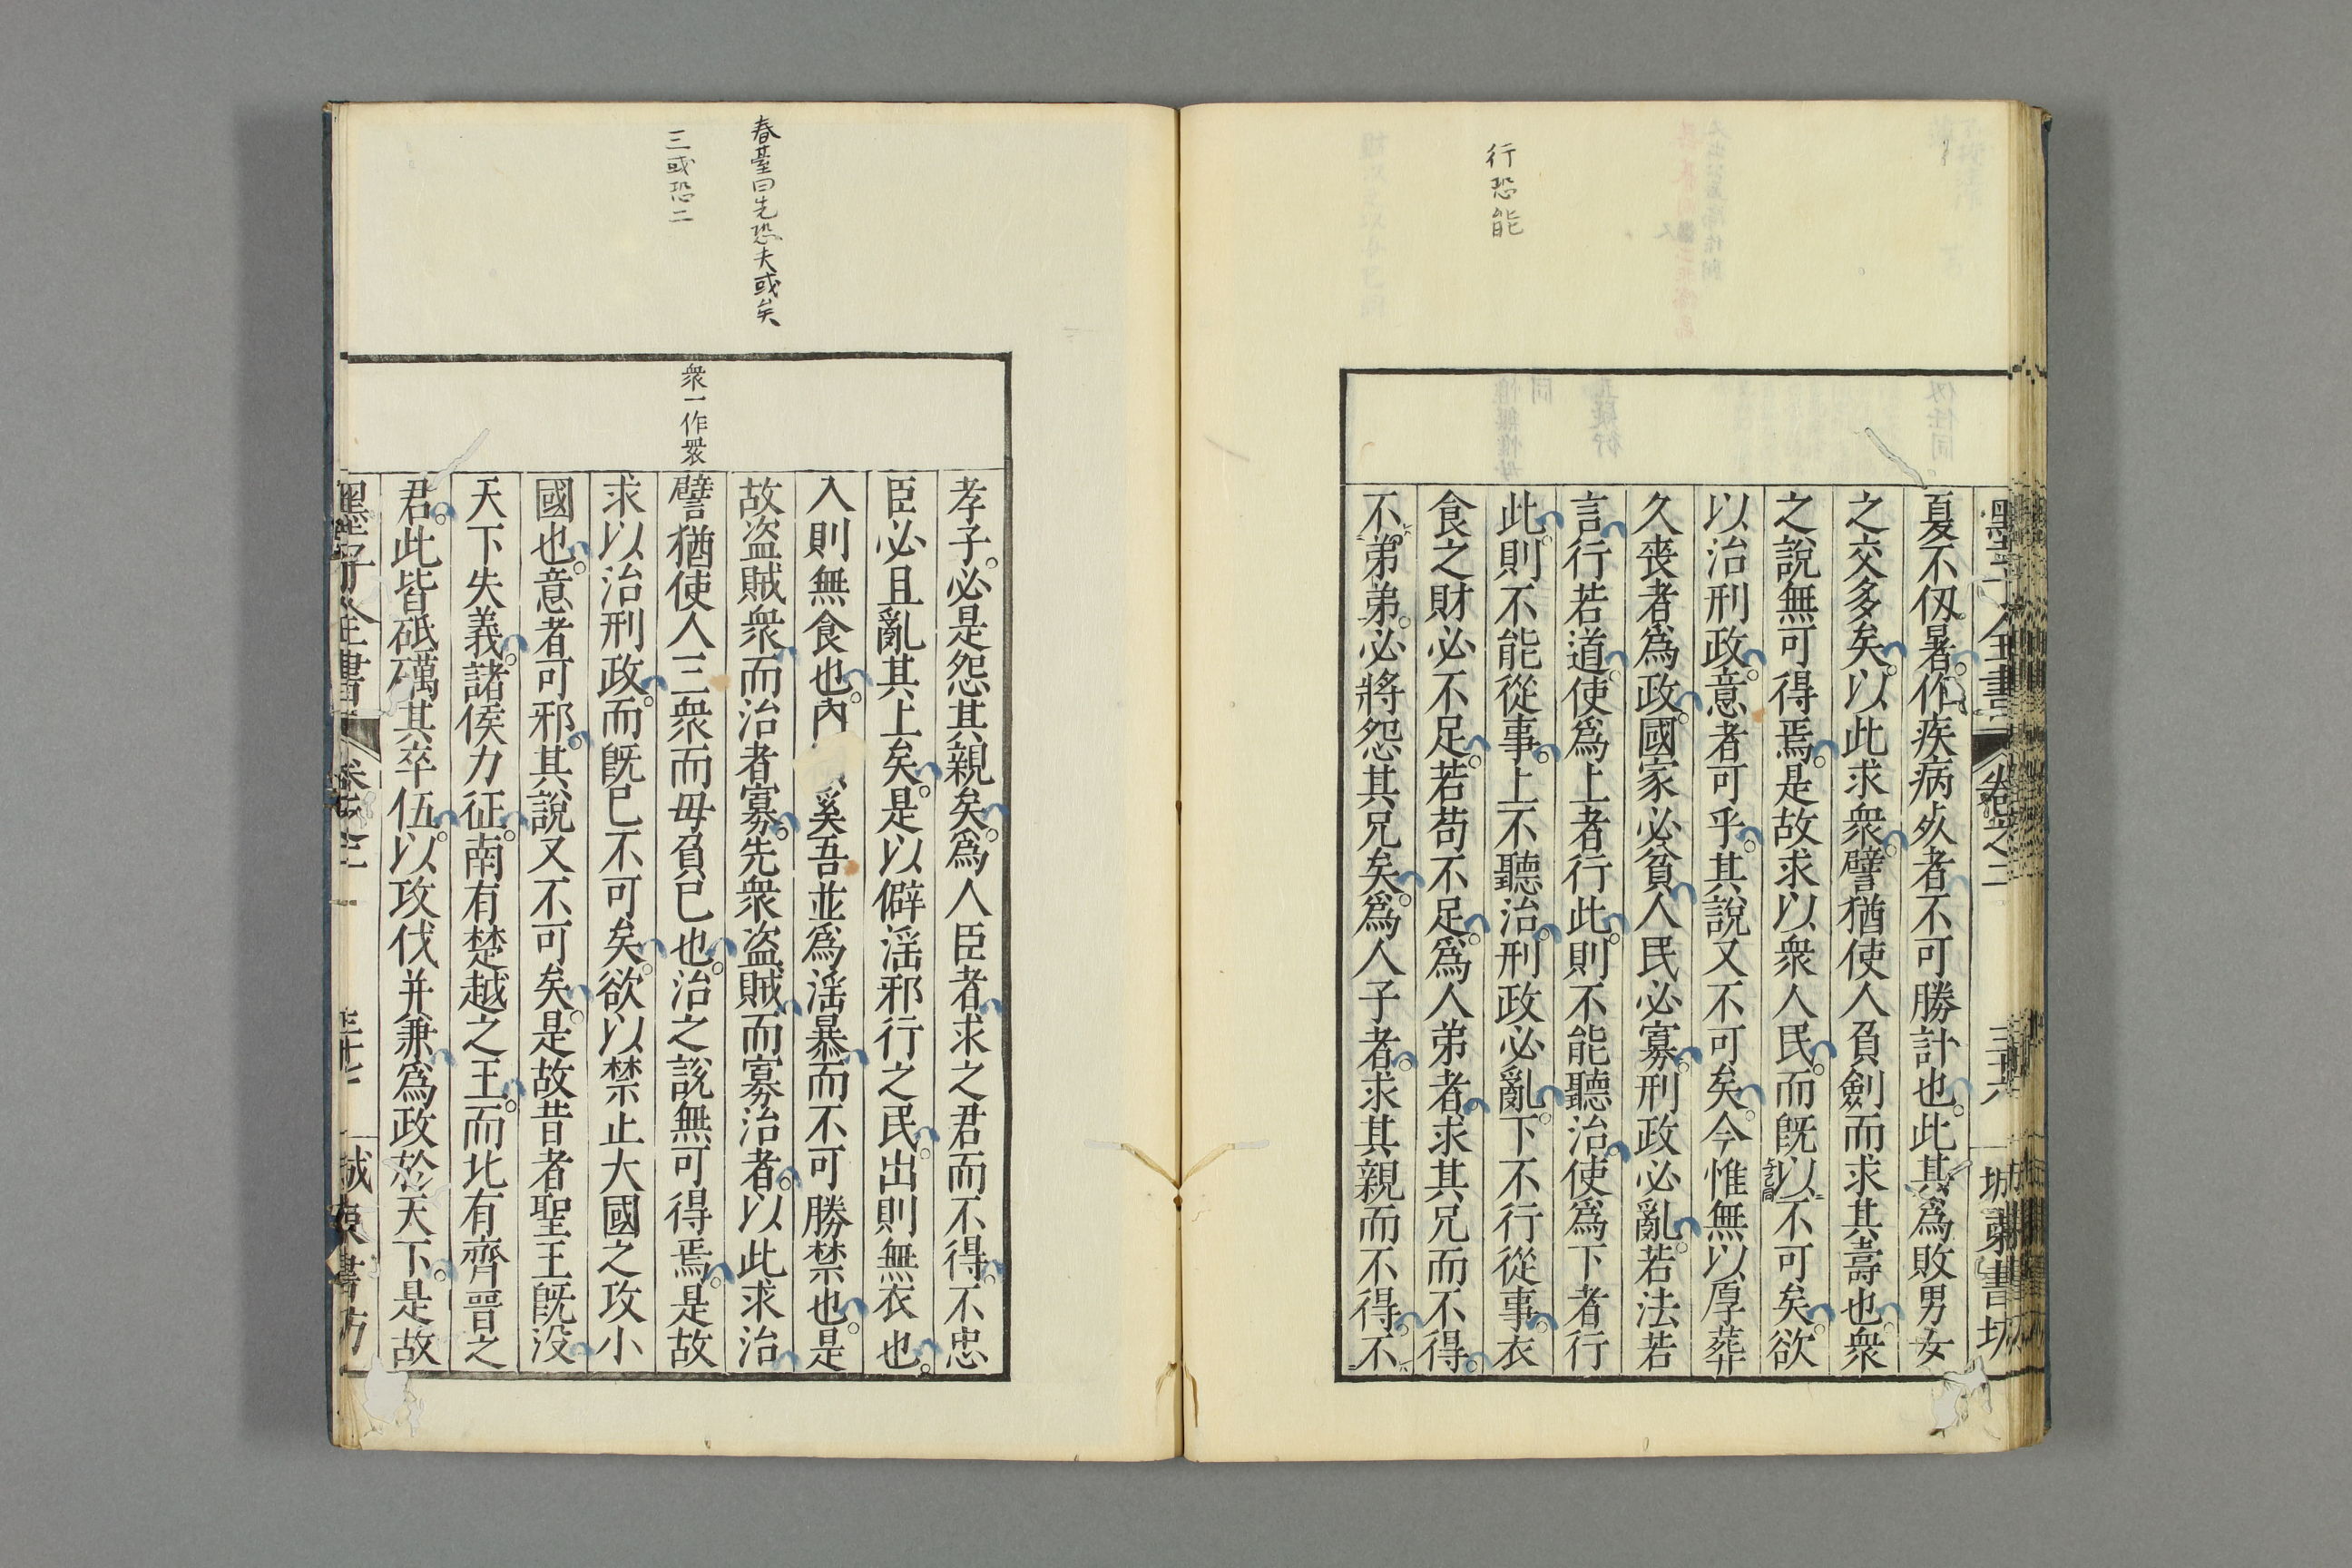 行恐能
墨子全書 卷之二 三十六 堀萬書坊
夏不仭暑作疾病夊者不可勝計也此其爲敗男女
之交多矣以此求衆譬猶使人負劍而求其壽也衆
之說無可得焉是故求以衆人民而旣以不可矣欲
以治刑政意者可乎其說又不可矣今惟無以厚葬
久喪者爲政國家必貧人民必寡刑政必亂若法若
言行若道使爲上者行此則不能聽治使爲下者行
此則不能從事上不聽治刑政必亂下不行從事衣
食之財必不足若苟不足爲人弟者求其兄而不得
不弟弟必將怨其兄矣爲人子者求其親而不得不
春臺曰先恐夫或矣
三或恐二
衆一作衆
孝子必是怨其親矣爲人臣者求之君而不得不忠
臣必且亂其上矣是以僻淫邪行之民出則無衣也
入則無食也內奚吾並爲淫暴而不可勝禁也是
故盜賊衆而治者寡先衆盜賊而寡治者以此求治
譬猶使人三衆而毋負已也治之說無可得焉是故
求以治刑政而旣已不可矣欲以禁止大國之攻小
國也意者可邪其說又不可矣是故昔者聖王旣沒
天下失義諸侯力征南有楚越之王而北有齊晉之
君此皆砥礪其卒伍以攻伐并兼爲政於天下是故
墨子全書 卷之三 三十七 城東書坊